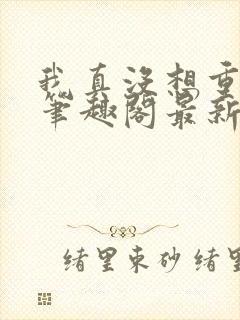 我真没想重
笔趣阁最新
绪里束砂 绪里